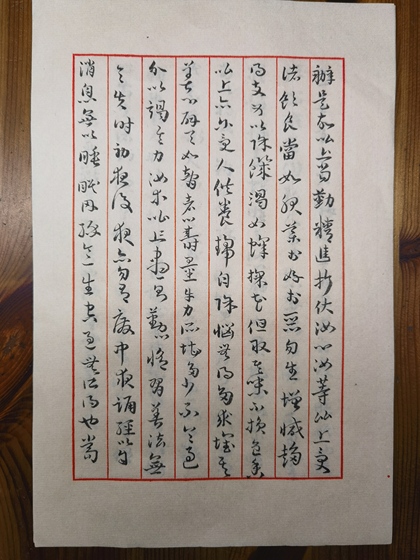 辦是故比丘當勤精進折伏汝心汝等比丘受
諸飲食當如服藥於好於惡勿生增減趣
得支身以除饑渴如蜂採花但取其味不損色香
比丘亦爾受人供養趣自除惱無得多求壞其
善心譬如智者籌量牛力所堪多少不令過
分以竭其力汝等比丘晝則勤心修習善法無
令失時初夜後夜亦勿有廢中夜誦經以自
消息無以睡眠因緣令一生空過無所得也當